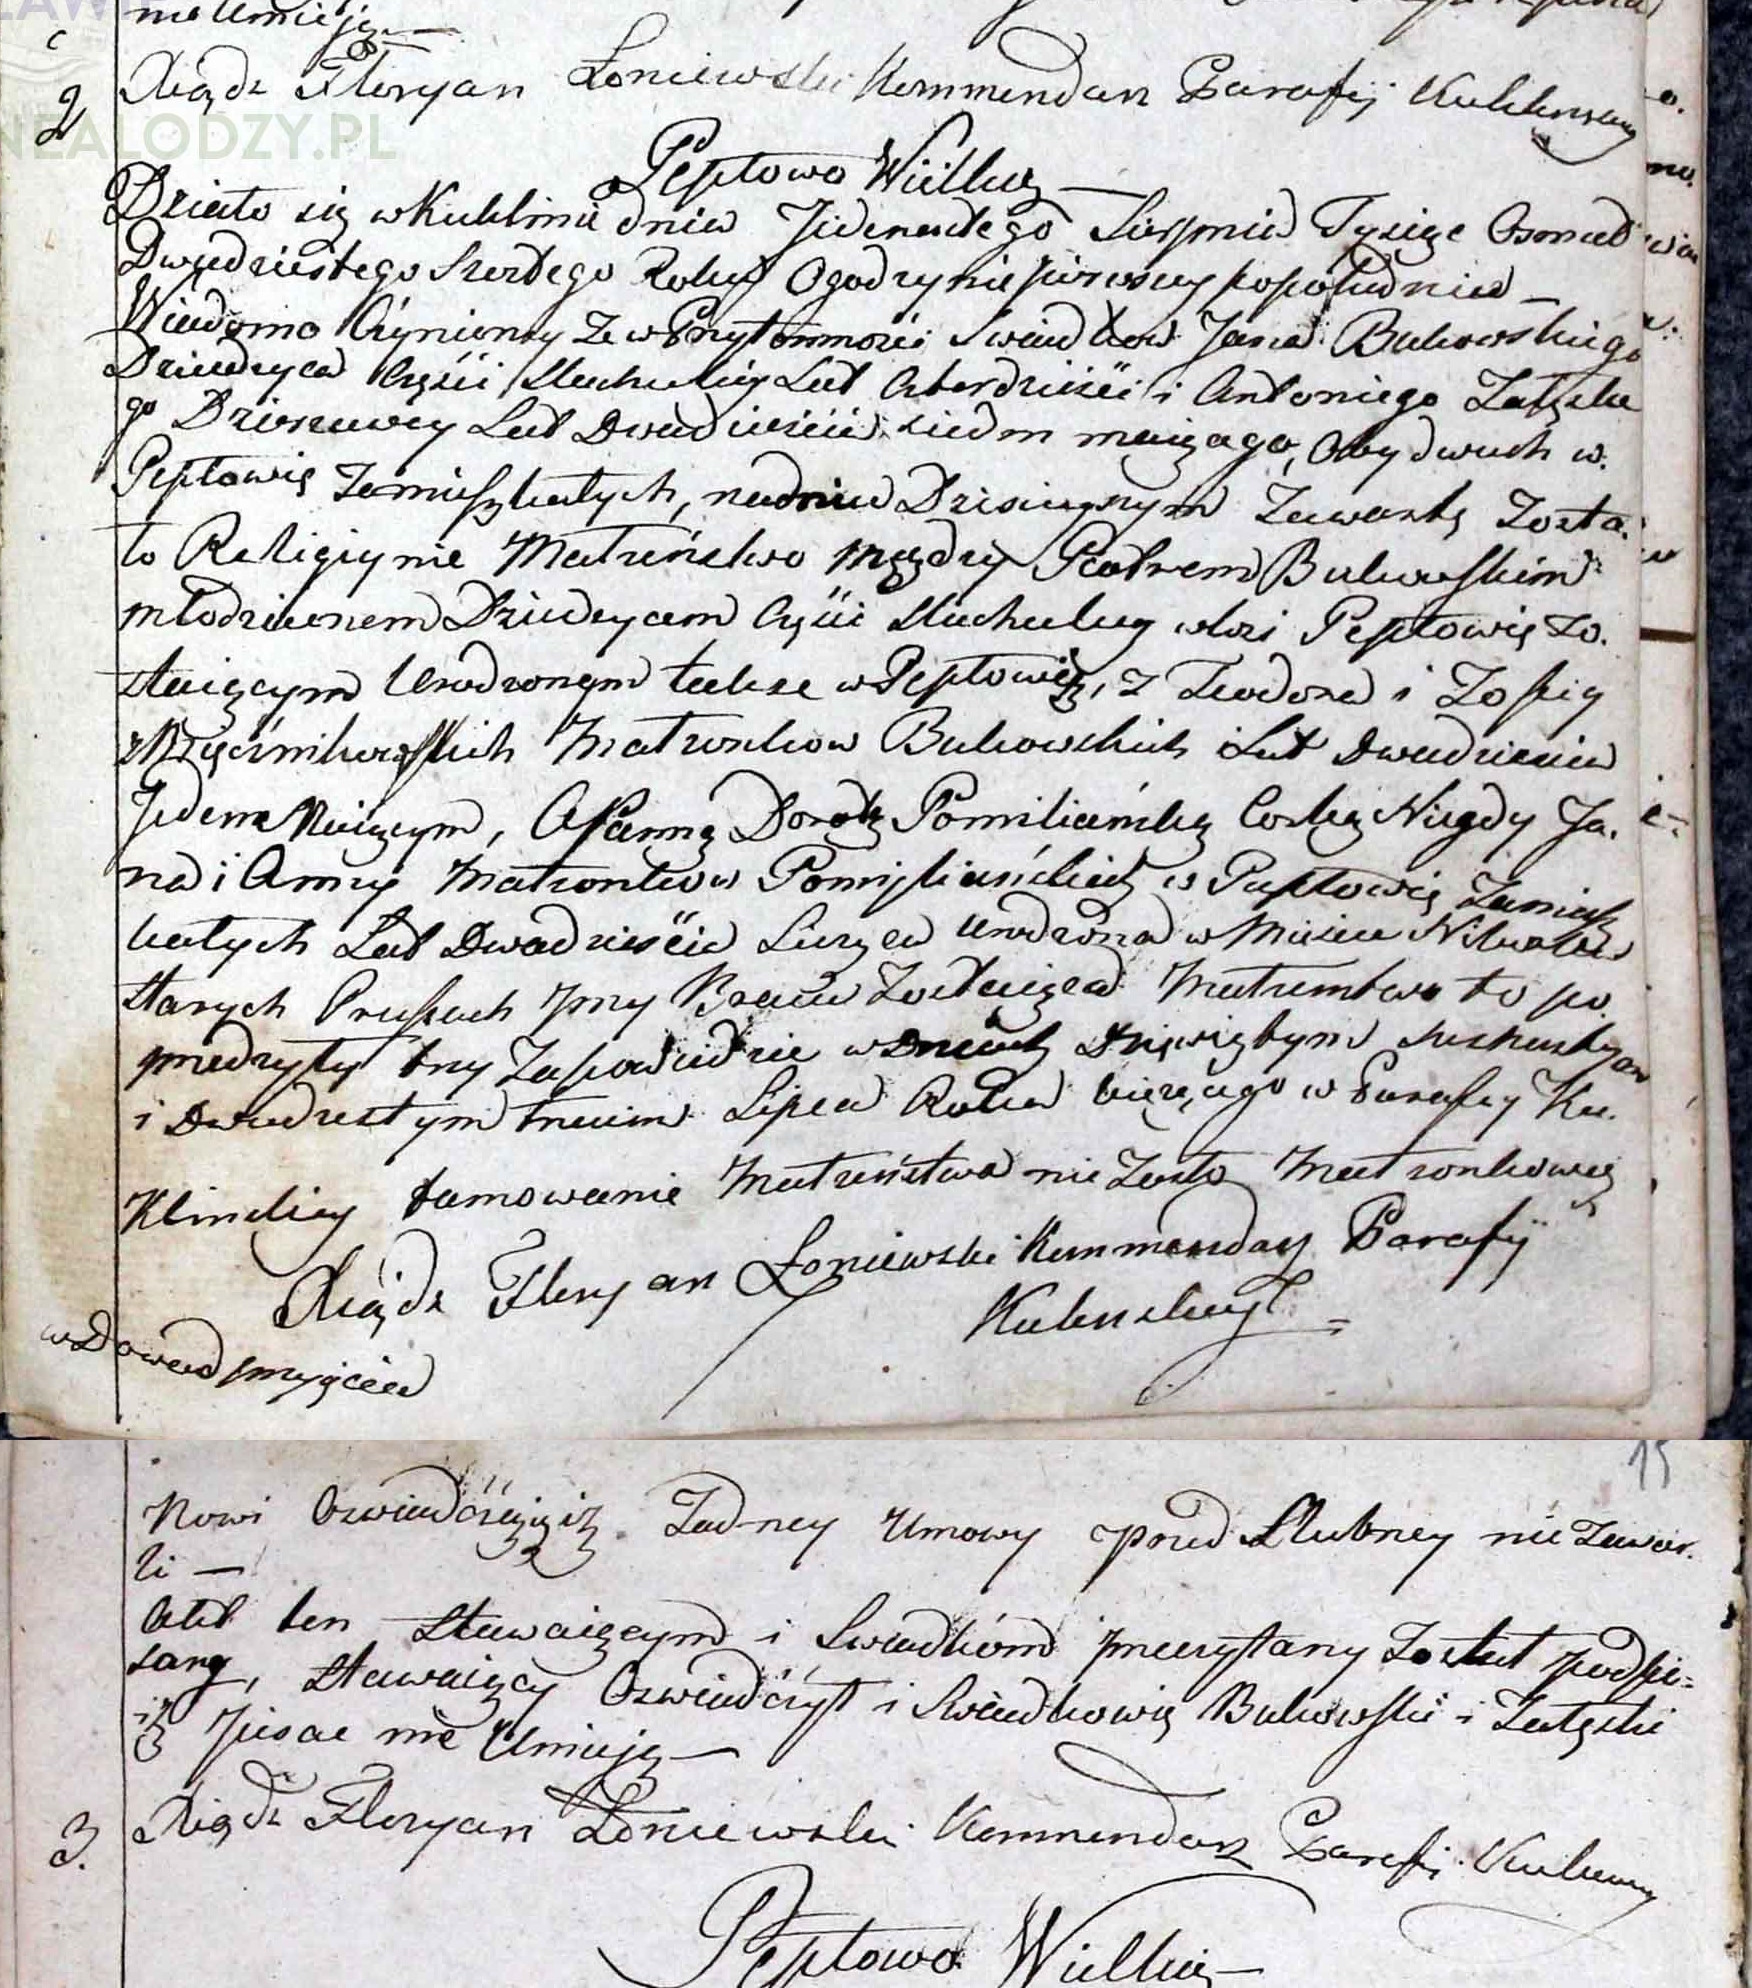 nie Umieją
2
Xiądz Floryan Łoniewski Kommendarz Parafij Kuklinskiey
NEALODZY.PL
Peptowo Wielkie
Działo się w Kuklinie dnia Jedenastego Sierpnia Tysiąc Osmset
Dwudziestego Szostego Roku O godzynie pierwszey popołudniu
Wiadomo Czyniemy Ze w Przytomnosci Swiadkow Jana Bukowskiego
Dziedzyca Częsci Slacheckiey Lat Czterdziesci i Antoniego Załęskie
go Dzierzawcy Lat Dwadziescia siedm maiącago, Obydwuch w
Peptowie Zamieszkałych, na dniu Dzisieyszym Zawarte Zosta
ło Religiynie Małzeństwo między Piotrem Bukowskim
młodzianem Dziedzycem Częsci Slacheckiey wWsi Peptowie Zo
staiącym Urodzonym takze w Peptowie, z Teodora i Zofiy
Małzonkow Bukowskich Lat Dwadziescia
Jeden Maiącym, A Panną Dorotą Pomiliańską Corką Niegdy Ja
na i Anny Małzonkow Pomyliańskich w Peptowie Zamiesz
kałych Lat Dwadziescia Liczącą urodzona w Miescie
Starych Prusach przy Bracie Zostaiąca Małzenstwo to po
przedzyły trzy Zapowiedzie w Dniach Dziewiątym Szesnastym
i Dwudziestym trzecim Lipca Roku biezącego w Parafiy Ku
Klinskiey tamowanie Małzeństwa nie Zaszło Małzonkowie
Xiądz Floryan Łoniewski Kommendarz Parafij
Kuklinskiey
w Dowod przyięcia
15
Nowi Oswiadczaią iz Zadney Umowy przed Slubney nie Zawar
li
Akt ten Stawaiącym i Swiadkom przeczytany Został podpi=
sany, Stawaiący Oswiadczył i Swiadkowie Bukowski i Załęski
iż pisac nie Umieją
3.
Xiądz Floryan Łoniewski Kommendarz Parafij Kuklinskiey
Peptowo Wielkie